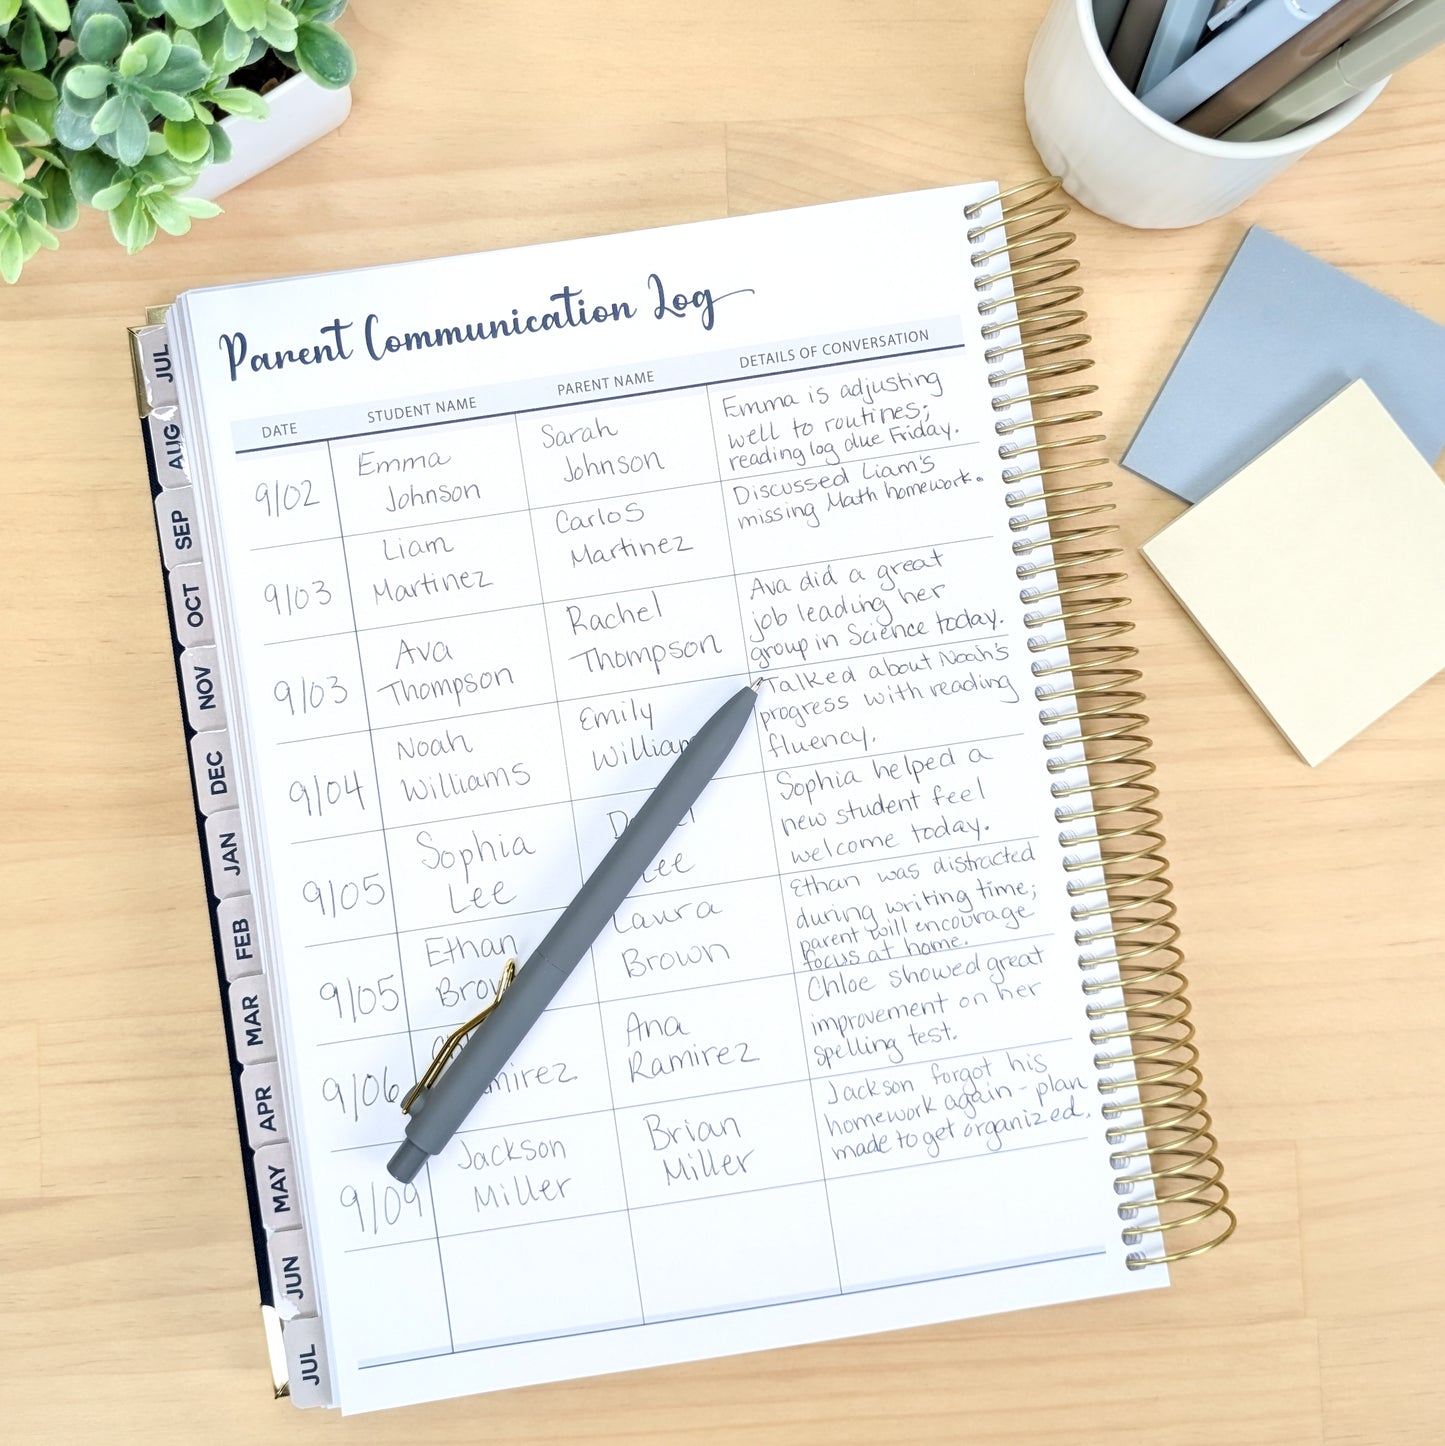 Parent Communication Log
DATE STUDENT NAME PARENT NAME DETAILS OF CONVERSATION
9/02
Emma
Johnson
Sarah
Johnson
Emma is adjusting
well to routines;
reading log due Friday.
9/03
Liam
Martinez
Carlos
Martinez
Discussed Liam's
missing Math homework.
9/03
Ava
Thompson
Rachel
Thompson
Ava did a great
job leading her
group in Science today.
9/04
Noah
Williams
Emily
Talked about Noah's
progress with reading
fluency.
9/05
Sophia
Lee
Lee
Sophia helped a
new student feel
welcome today.
9/05
Ethan
Laura
Brown
Ethan was distracted
during writing time;
parent will encourage
focus at home.
9/06
Ana
Ramirez
Chloe showed great
improvement on her
spelling test.
9/09
Jackson
Miller
Brian
Miller
Jackson forgot his
homework again - plan
made to get organized.
JUL
AUG
SEP
OCT
NOV
DEC
JAN
FEB
MAR
APR
MAY
JUN
JUL